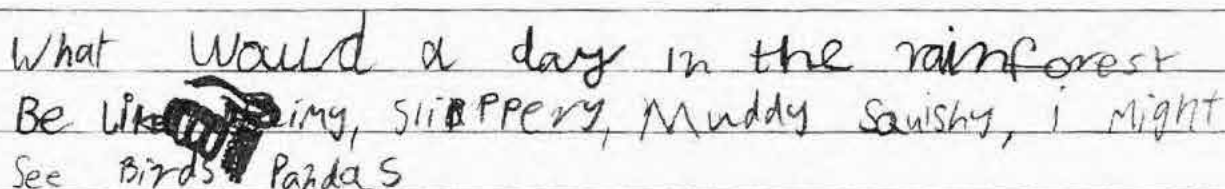 What Would a day in the rainforest
Be Like imy, Slippery, Muddy Squishy, i Might
See Birds Pandas